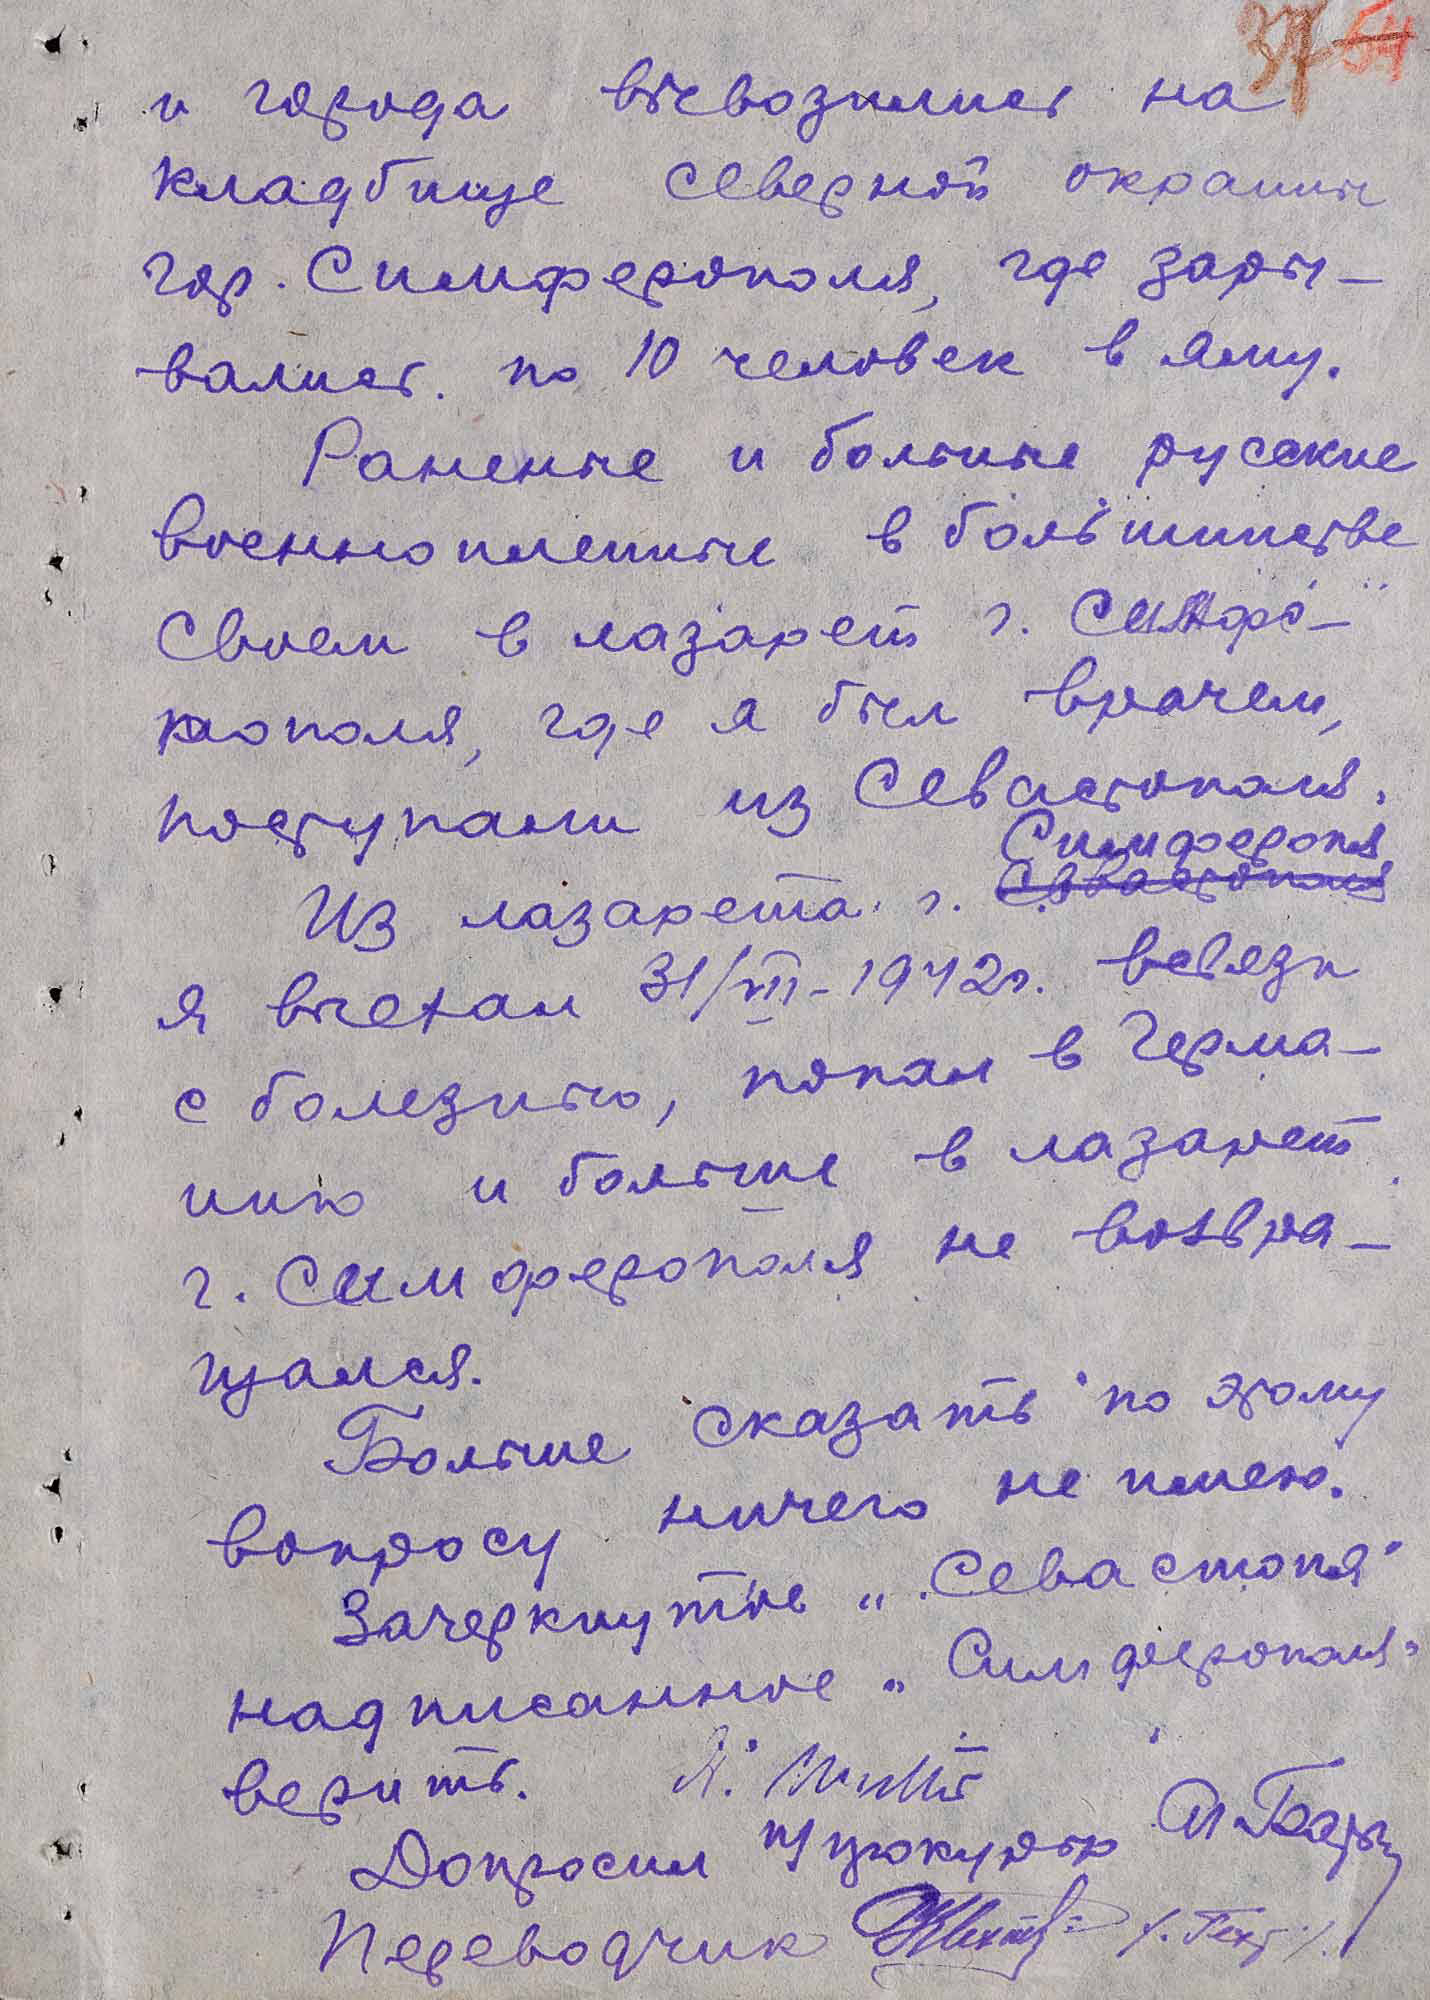 37 54
и города вывозились на
кладбище северной окраины
гор. Симферополя, где зары-
вались по 10 человек в яму.
Раненые и больные русские
военнопленные в большинстве
своем в лазарет г. Симфе-
рополя, где я был врачем,
поступали из Севастополя.
Симферополя
Из лазарета г. Севастополя
я выехал 31/VIII-1942г. всвязи
с болезнью, попал в Герма-
нию и больше в лазарет
г. Симферополя не возвра-
щался.
Больше сказать по этому
вопросу ничего не имею.
Зачеркнутое „Севастопля"
надписанное „Симферополя"
верить.
Допросил
Переводчик